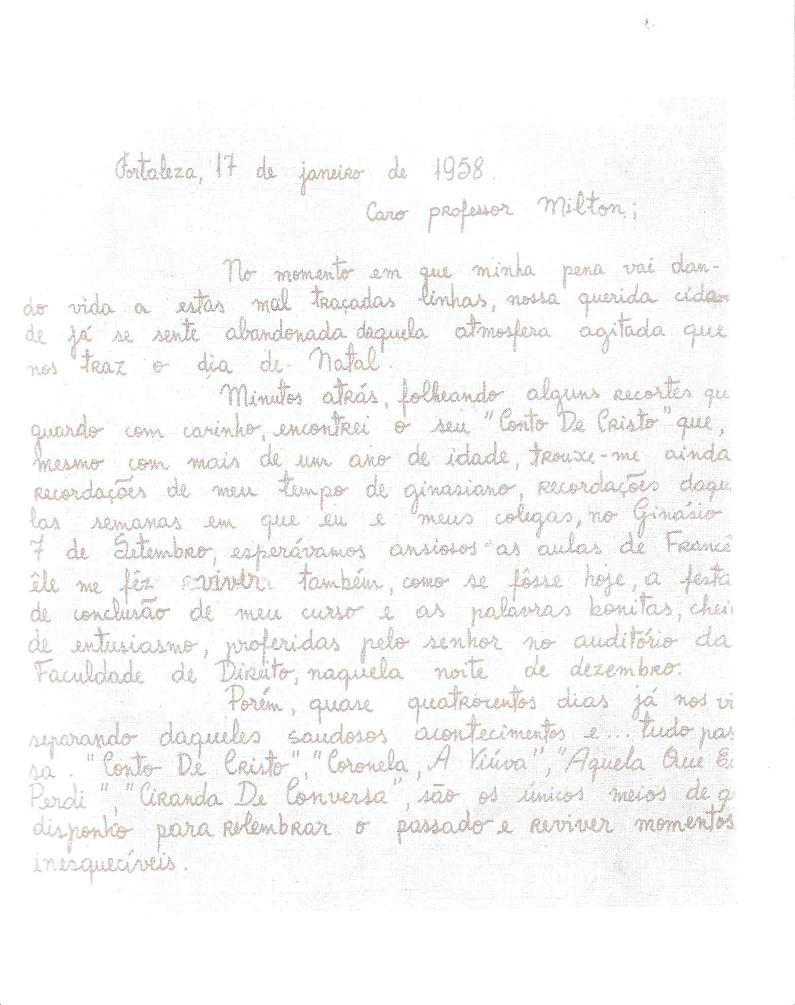 Fortaleza, 17 de janeiro de 1958.
Caro professor Milton;
No momento em que minha pena vai dan-
do vida a estas mal traçadas linhas, nossa querida cida-
de já se sente abandonada daquela atmosfera agitada que
nos traz o dia de Natal.
Minutos atrás, folheando alguns recortes qu
guardo com carinho, encontrei o seu "Conto De Cristo" que,
mesmo com mais de um ano de idade, trouxe-me ainda
recordações de meu tempo de ginasiano, recordações daque
las semanas em que eu e meus colegas, no Ginásio
7 de Setembro, esperávamos ansiosos as aulas de Francê
êle me fêz reviver também, como se fôsse hoje, a festa
de conclusão de meu curso e as palavras bonitas, chei
de entusiasmo, proferidas pelo senhor no auditório da
Faculdade de Direito, naquela noite de dezembro.
Porém, quase quatrocentos dias já nos vi
separando daqueles saudosos acontecimentos e... tudo pas
sa. "Conto De Cristo", "Coronela, A Viúva", "Aquela Que Eu
Perdi", "Ciranda De Conversa", são os únicos meios de q
disponho para relembrar o passado e reviver momentos
inesquecíveis.